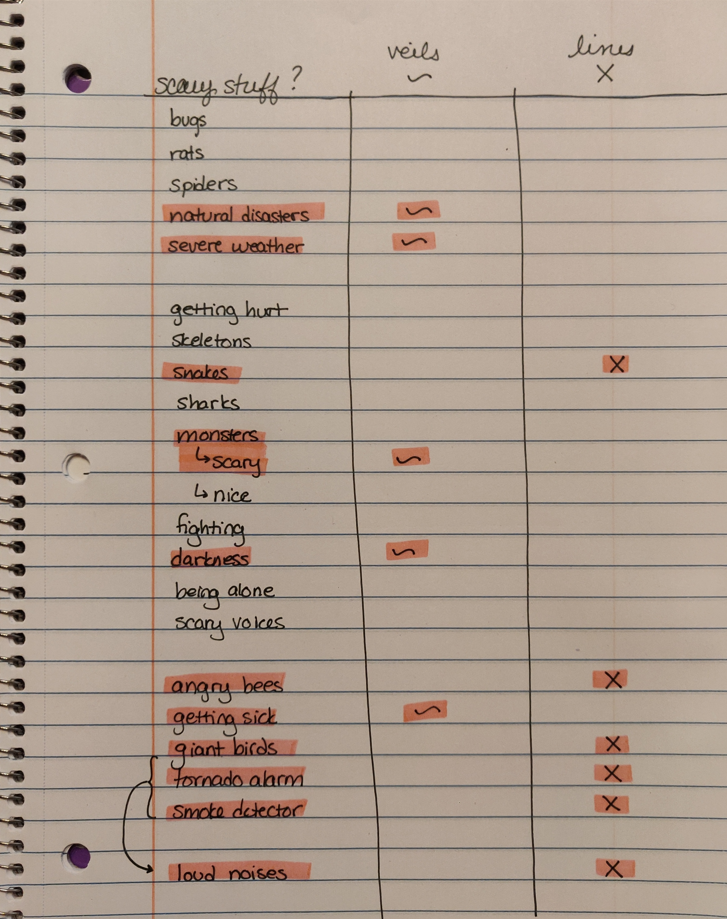 veils lines
scary stuff? ~ X
bugs
rats
spiders
natural disasters ~
severe weather ~
getting hurt
skeletons
snakes X
sharks
monsters
↳ scary ~
↳ nice
fighting
darkness ~
being alone
scary voices
angry bees X
getting sick ~
giant birds X
tornado alarm X
smoke detector X
loud noises X